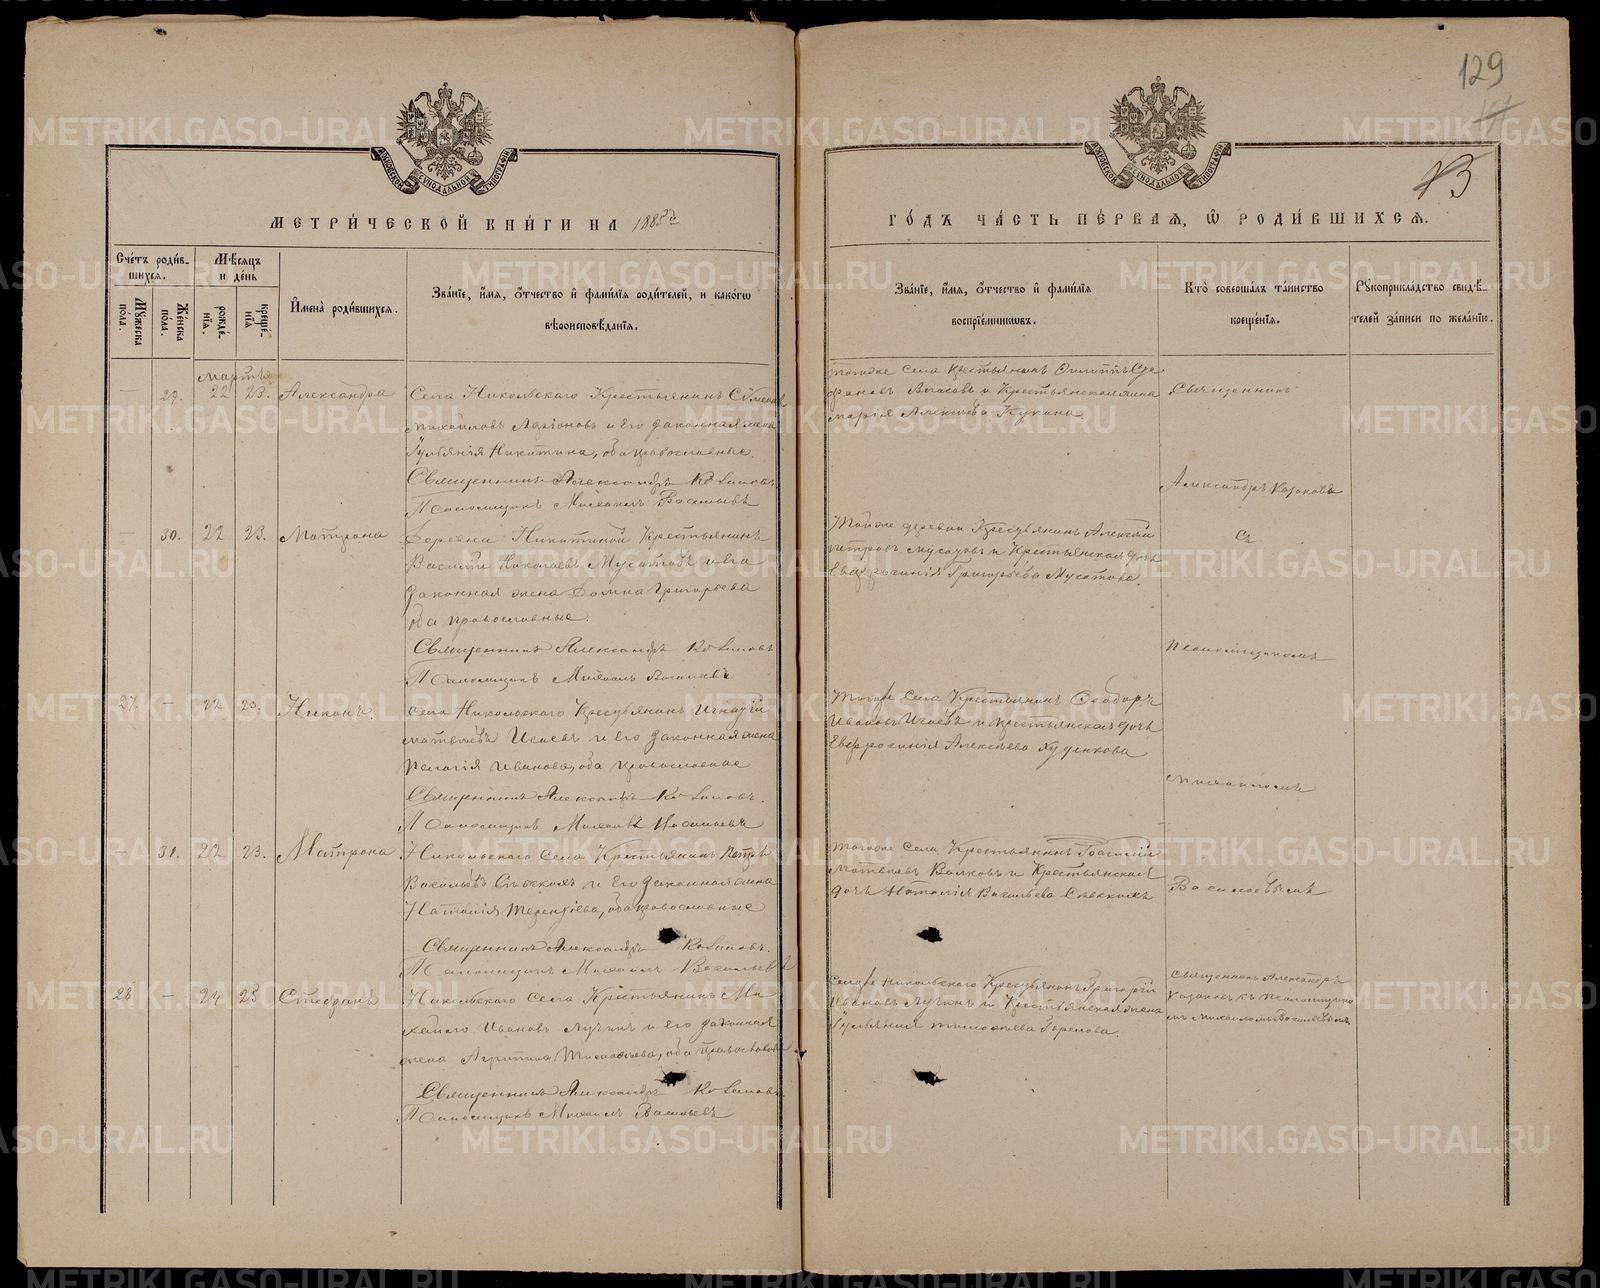 129
13
МЕТРИ́ЧЕСКОЙ КНИ́ГИ НА 1885й
ГО́ДЪ ЧА́СТЬ ПЕ́РВАЯ, Ѡ РОДИ́ВШИХСЯ.
Сче́тъ роди́в-
шихся.
Му́жеска по́ла.
Же́нска по́ла.
Мѣ́сяцъ и де́нь
рожде́нїя.
креще́нїя
И҆мена̀ роди́вшихся.
Зва́нїе, и҆́мя, ѻ҆́тчество и҆ фами́лїя роди́телей, и҆ како́гѡ
вѣроисповѣ́данїя.
Зва́нїе, и҆́мя, ѻ҆́тчество и҆ фами́лїя
воспрїе́мникѡвъ.
Кто̀ соверша́лъ та́инство
креще́нїя.
Рꙋкоприкла́дство свидѣ́-
телей за́писи по жела́нїю.
Мартъ
— 29. 22 23. Александра
Села Никольскаго Крестьянинъ
Михайловъ Ларіоновъ и его законная жена
Никитина, оба православные.
Священникъ Александръ Казаковъ
Псаломщикъ Михаилъ Васильевъ
тогоже села Крестьянинъ Филиппъ
и Крестьянская жена
Марія Алексѣева
Священникъ
Александръ Казаковъ
— 30. 22 23. Матрона
Деревни Никитиной Крестьянинъ
Василій Николаевъ Мусатовъ и его
законная жена Домна Григорьева
оба православные.
Священникъ Александръ Казаковъ
Псаломщикъ Михаилъ Васильевъ
Тойже деревни Крестьянинъ Алексѣй
Петровъ Мусатовъ и Крестьянская дочь
Евфросинія Григорьева Мусатова.
съ
Псаломщикомъ
27 — 22 23. Никонъ.
Села Никольскаго Крестьянинъ Игнатій
Матвѣевъ Исаевъ и его законная жена
Пелагія Иванова, оба православные
Священникъ Александръ Казаковъ.
Псаломщикъ Михаилъ Васильевъ
Тогоже села Крестьянинъ Ѳеодоръ
Ивановъ Исаевъ и крестьянская дочь
Евфросинія Алексѣева
Михаиломъ
31. 22 23. Матрона
Никольскаго села Крестьянинъ Петръ
Васильевъ и его законная жена
Наталія Терентіева, оба православные
Священникъ Александръ Казаковъ.
Псаломщикъ Михаилъ Васильевъ
тогоже села Крестьянинъ
Матвѣевъ Волковъ и Крестьянская
дочь Наталія Васильева
Васильевымъ
28 — 24 25 Стефанъ
Никольскаго села Крестьянинъ Ми
хайло Ивановъ Лучинъ и его законная
жена Агрипина Тимофѣева, оба православные
Священникъ Александръ Казаковъ
Псаломщикъ Михаилъ Васильевъ
Села Никольскаго Крестьянинъ Григорій
Ивановъ Лучинъ и Крестьянская жена
Тимофѣева
Священникъ Александръ
Казаковъ съ Псаломщико
мъ Михаиломъ Васильевымъ
METRIKI.GASO-URAL.RU